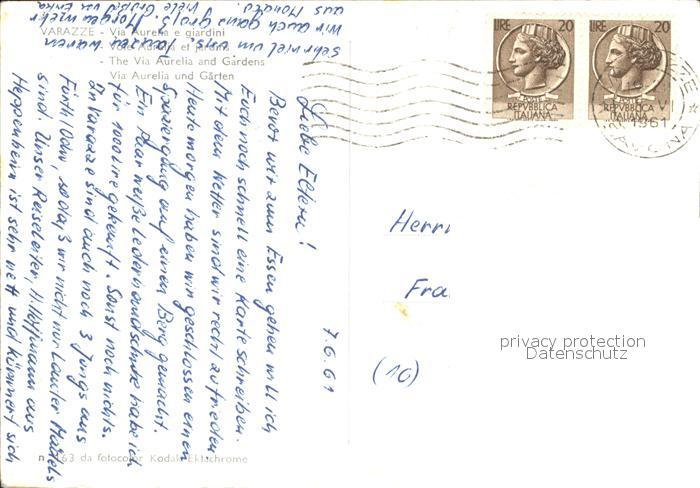 VARAZZE - Via Aurelia e giardini
- The Via Aurelia and Gardens
Via Aurelia und Gärten
7.6.61
Liebe Eltern!
Bevor wir zum Essen gehen will ich
Euch noch schnell eine Karte schreiben.
Mit dem Wetter sind wir recht zufrieden
Heute morgen haben wir geschlossen einen
Spaziergang auf einen Berg gemacht.
Ein Paar weiße Lederhandschuhe habe ich
für 1000 Lire gekauft. Sonst noch nichts.
In Varazze sind auch noch 3 Jungs aus
Fürth /Odw, so daß wir nicht nur lauter Mädels
sind. Unser Reiseleiter, H. Hoffmann aus
Heppenheim ist sehr nett und kümmert sich
sehr viel um uns. Morgen
wir auch ganz groß.
aus Monaco. Viele Grüße von Erika
LIRE 20
POSTE
REPVBBLICA
ITALIANA
LIRE 20
POSTE
REPVBBLICA
ITALIANA
VI
1961
Herrn
Fra
(16)
privacy protection
Datenschutz
n. 163 da fotocolor Kodak Ektachrome